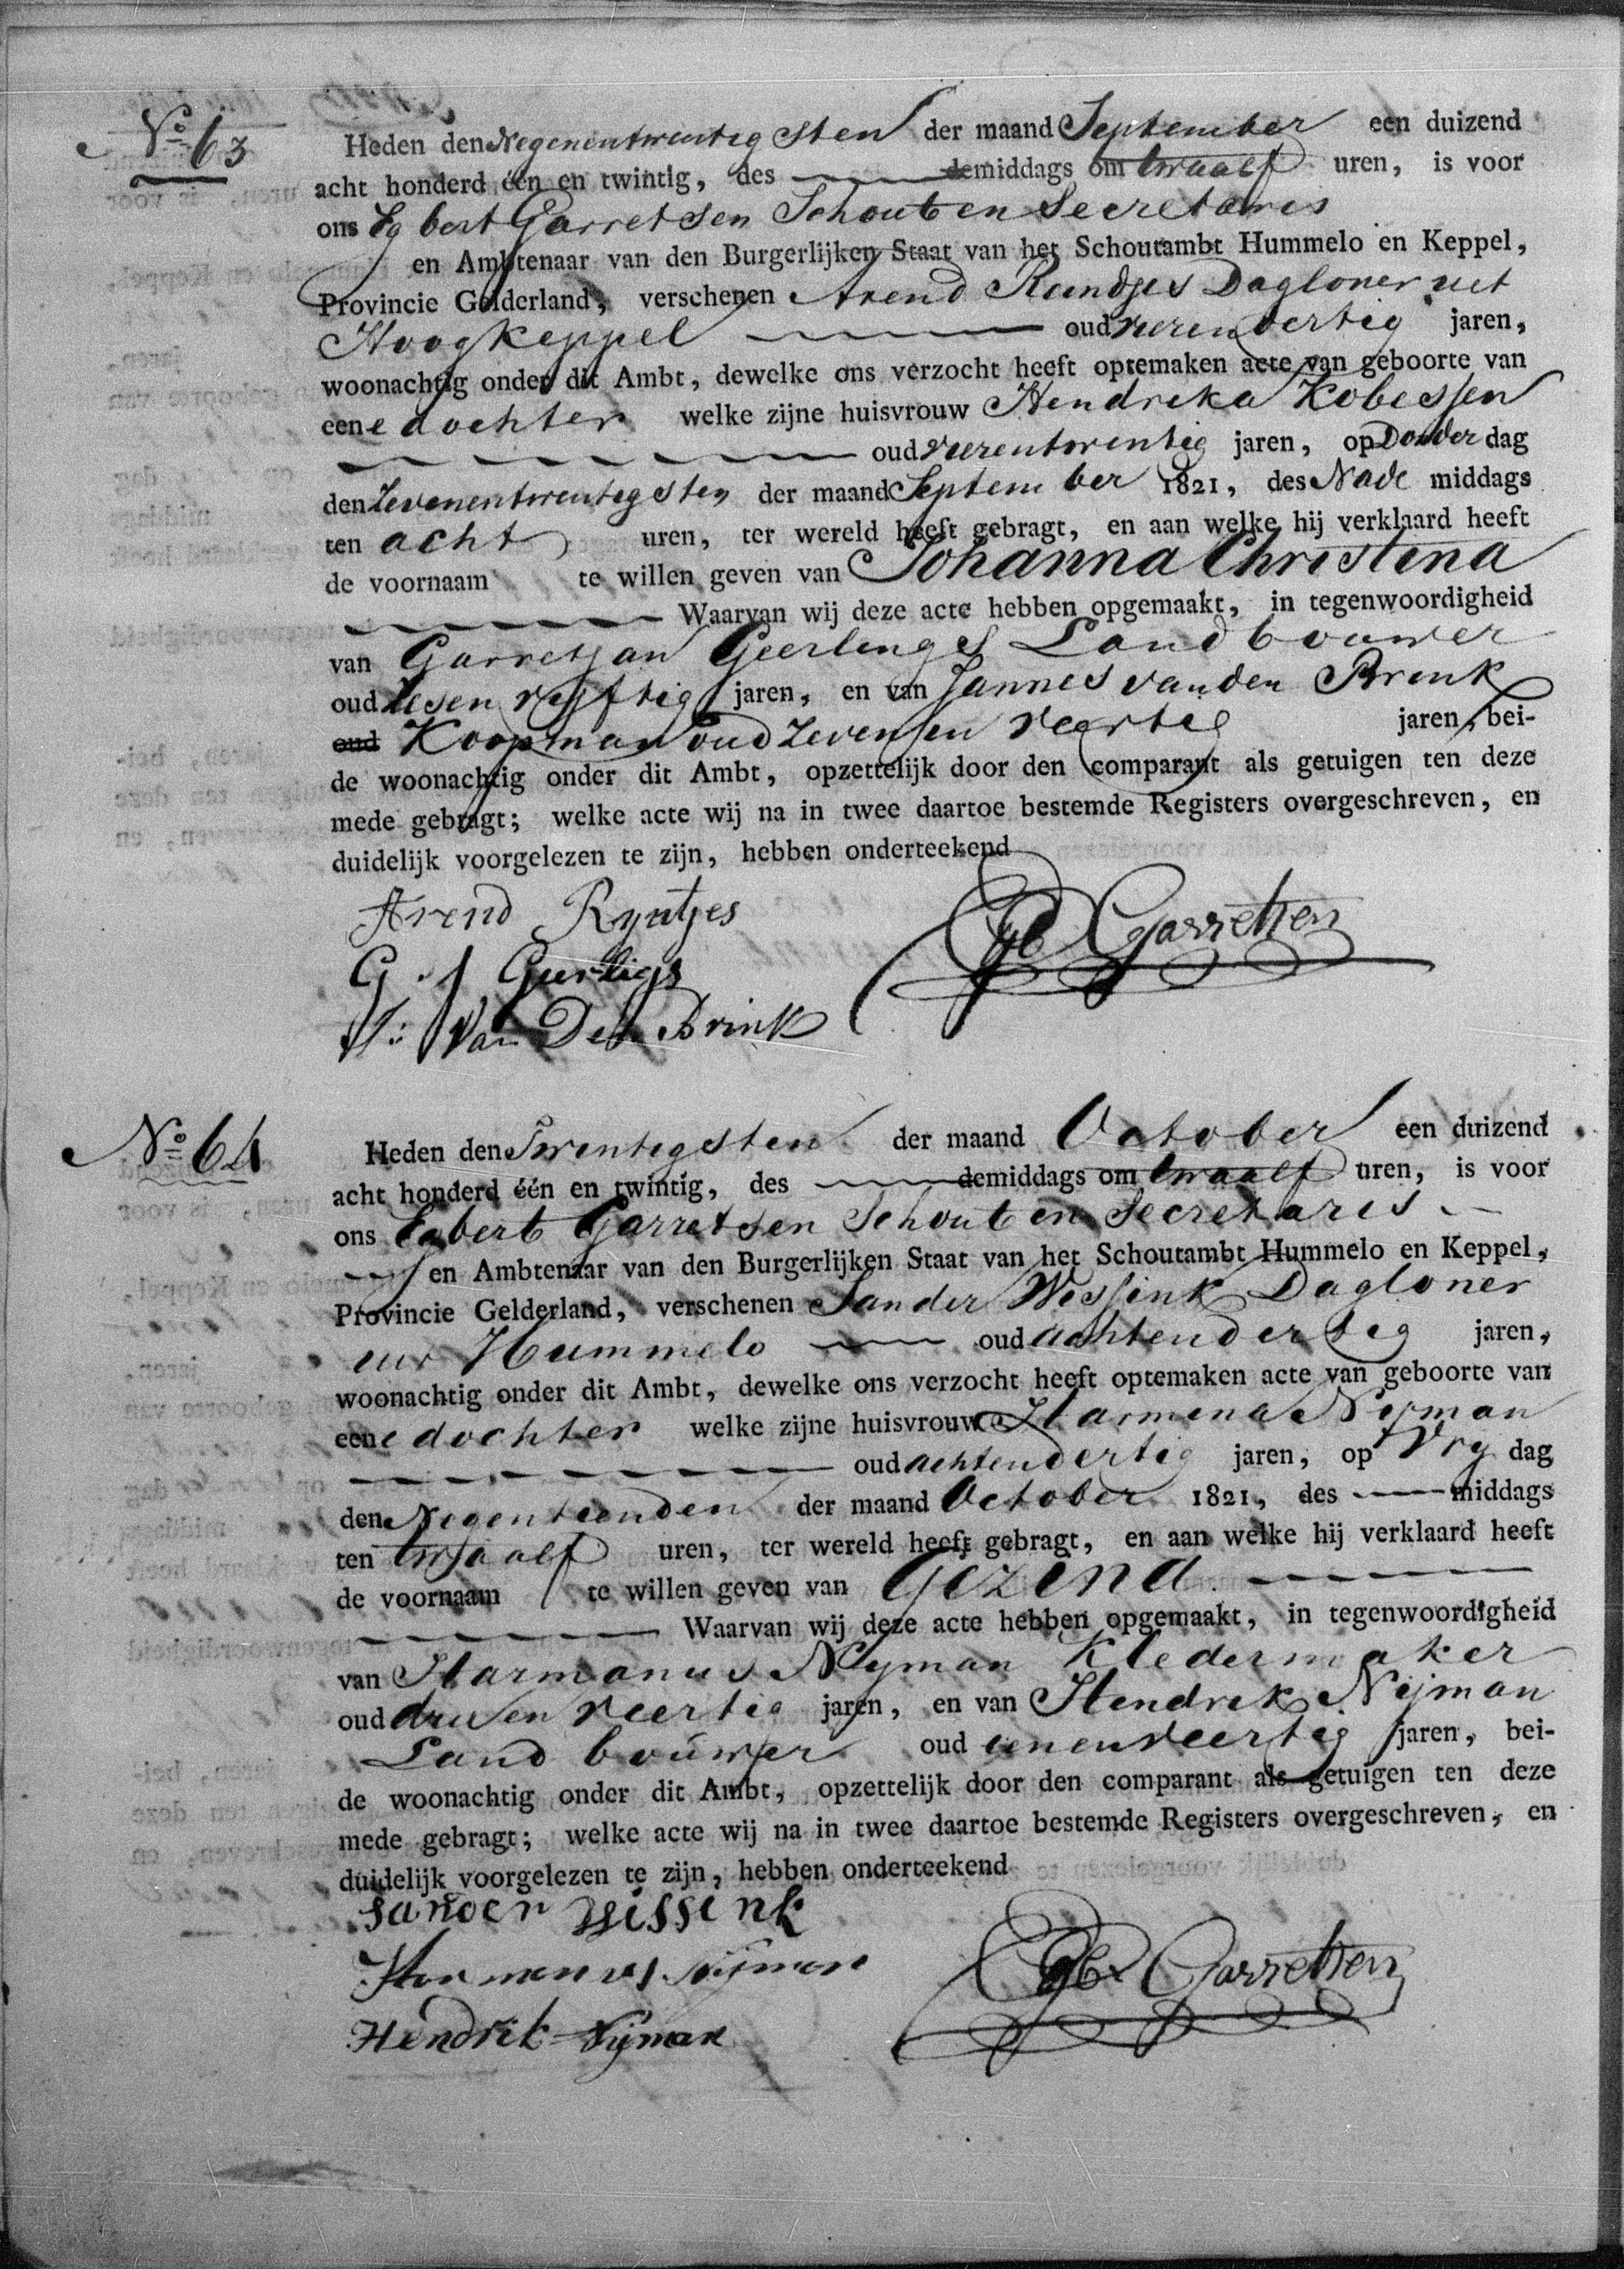 No 63
Heden den Negenentwintigsten der maand September een duizend
acht honderd één en twintig, des demiddags om twaalf uren, is voor
ons Egbert Garretsen Schout en Secretaris
en Ambtenaar van den Burgerlijken Staat van het Schoutambt Hummelo en Keppel,
Provincie Gelderland, verschenen Arend Reindjes Dagloner uit
Hoog Keppel oud vierendertig jaren,
woonachtig onder dit Ambt, dewelke ons verzocht heeft optemaken acte van geboorte van
eene dochter welke zijne huisvrouw Hendreka Kobessen
oud vierentwentig jaren, op Donder dag
den Zevenentwentegsten der maand September 1821, des Nade middags
ten acht uren, ter wereld heeft gebragt, en aan welke hij verklaard heeft
de voornaam te willen geven van Johanna Christina
Waarvan wij deze acte hebben opgemaakt, in tegenwoordigheid
van Garretjan Geerlengs Landbouwer
oud Zesen vijftig jaren, en van Jannes van den Brink
oud Koopman oud Zevenen veertig jaren, bei-
de woonachtig onder dit Ambt, opzettelijk door den comparant als getuigen ten deze
mede gebragt; welke acte wij na in twee daartoe bestemde Registers overgeschreven, en
duidelijk voorgelezen te zijn, hebben onderteekend
Arend Ryntjes
Garretsen
G J Gurligs
J: Van Den Brink
No 64
Heden den Twentegsten der maand October een duizend
acht honderd één en twintig, des demiddags om twaalf uren, is voor
ons Egbert Garretsen Schout en Secretares
en Ambtenaar van den Burgerlijken Staat van het Schoutambt Hummelo en Keppel,
Provincie Gelderland, verschenen Sander Wissink Dagloner
uit Hummelo oud achtenderteg jaren,
woonachtig onder dit Ambt, dewelke ons verzocht heeft optemaken acte van geboorte van
eene dochter welke zijne huisvrouw Harmena Nijman
oud achtendertig jaren, op Vry dag
den Negentienden der maand October 1821, des middags
ten twaalf uren, ter wereld heeft gebragt, en aan welke hij verklaard heeft
de voornaam te willen geven van Gezina
Waarvan wij deze acte hebben opgemaakt, in tegenwoordigheid
van Harmanus Nyman Kledermaker
oud drieen veertig jaren, en van Hendrek Nijman
Landbouwer oud eenenveerteg jaren, bei-
de woonachtig onder dit Ambt, opzettelijk door den comparant als getuigen ten deze
mede gebragt; welke acte wij na in twee daartoe bestemde Registers overgeschreven, en
duidelijk voorgelezen te zijn, hebben onderteekend
Sander Wissink
Harmanus Nijman
Garretsen
Hendrik Nijman